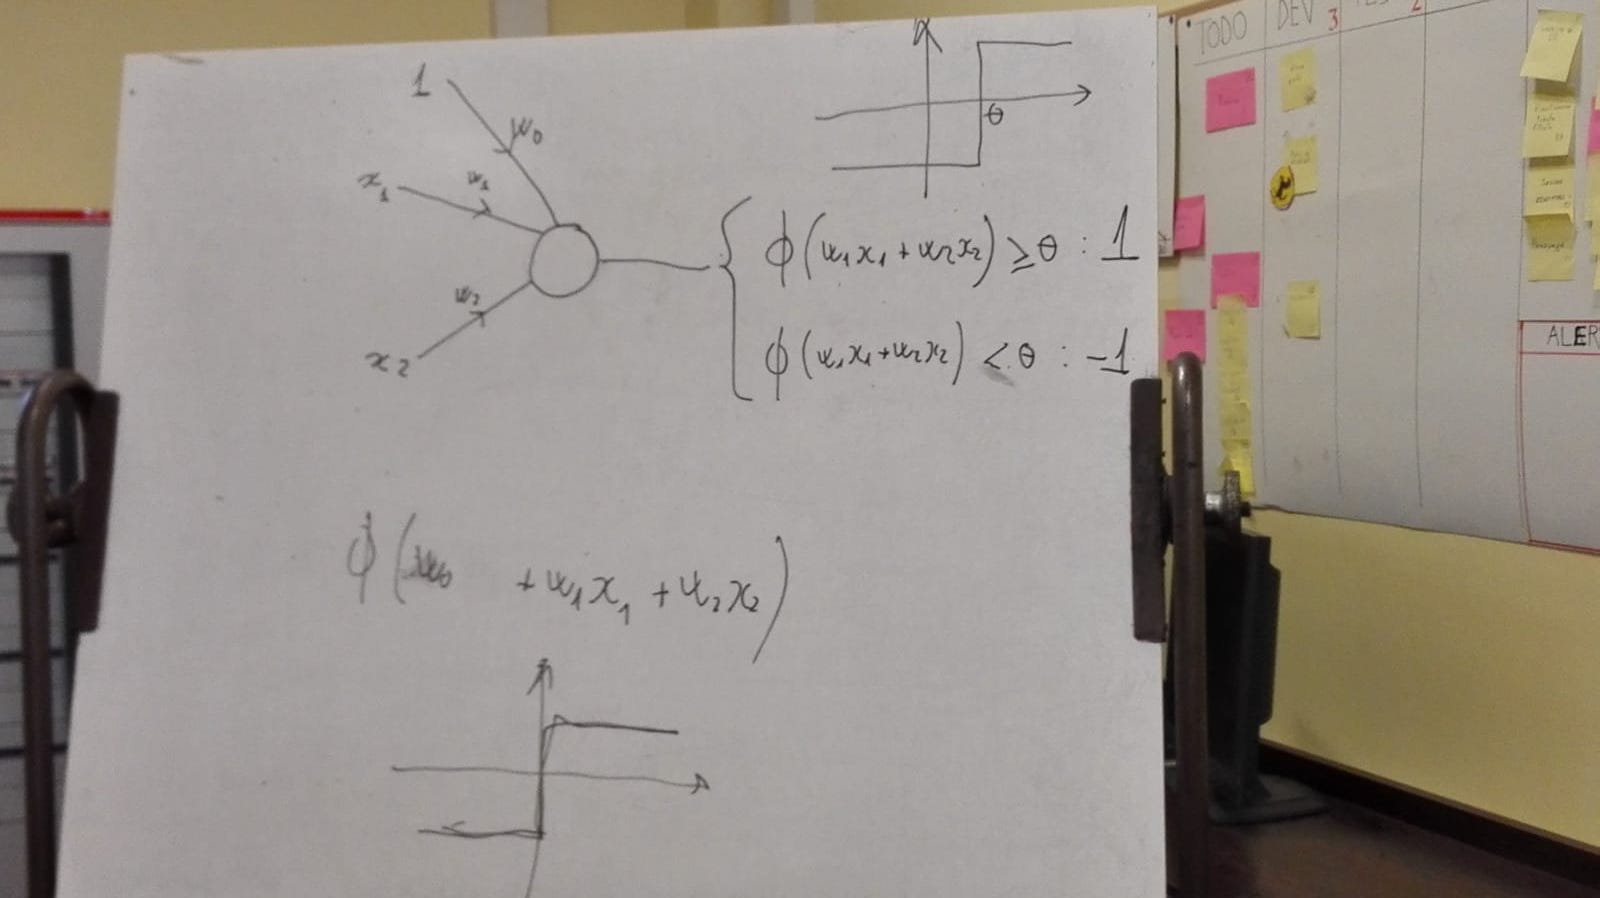 1
w₀
x₁
w₁
w₂
x₂
θ
ϕ(w₁x₁ + w₂x₂) ≥ θ : 1
ϕ(w₁x₁+w₂x₂) < θ : -1
ϕ(w₀ + w₁x₁ + w₂x₂)
TODO
DEV 3
2
ALER